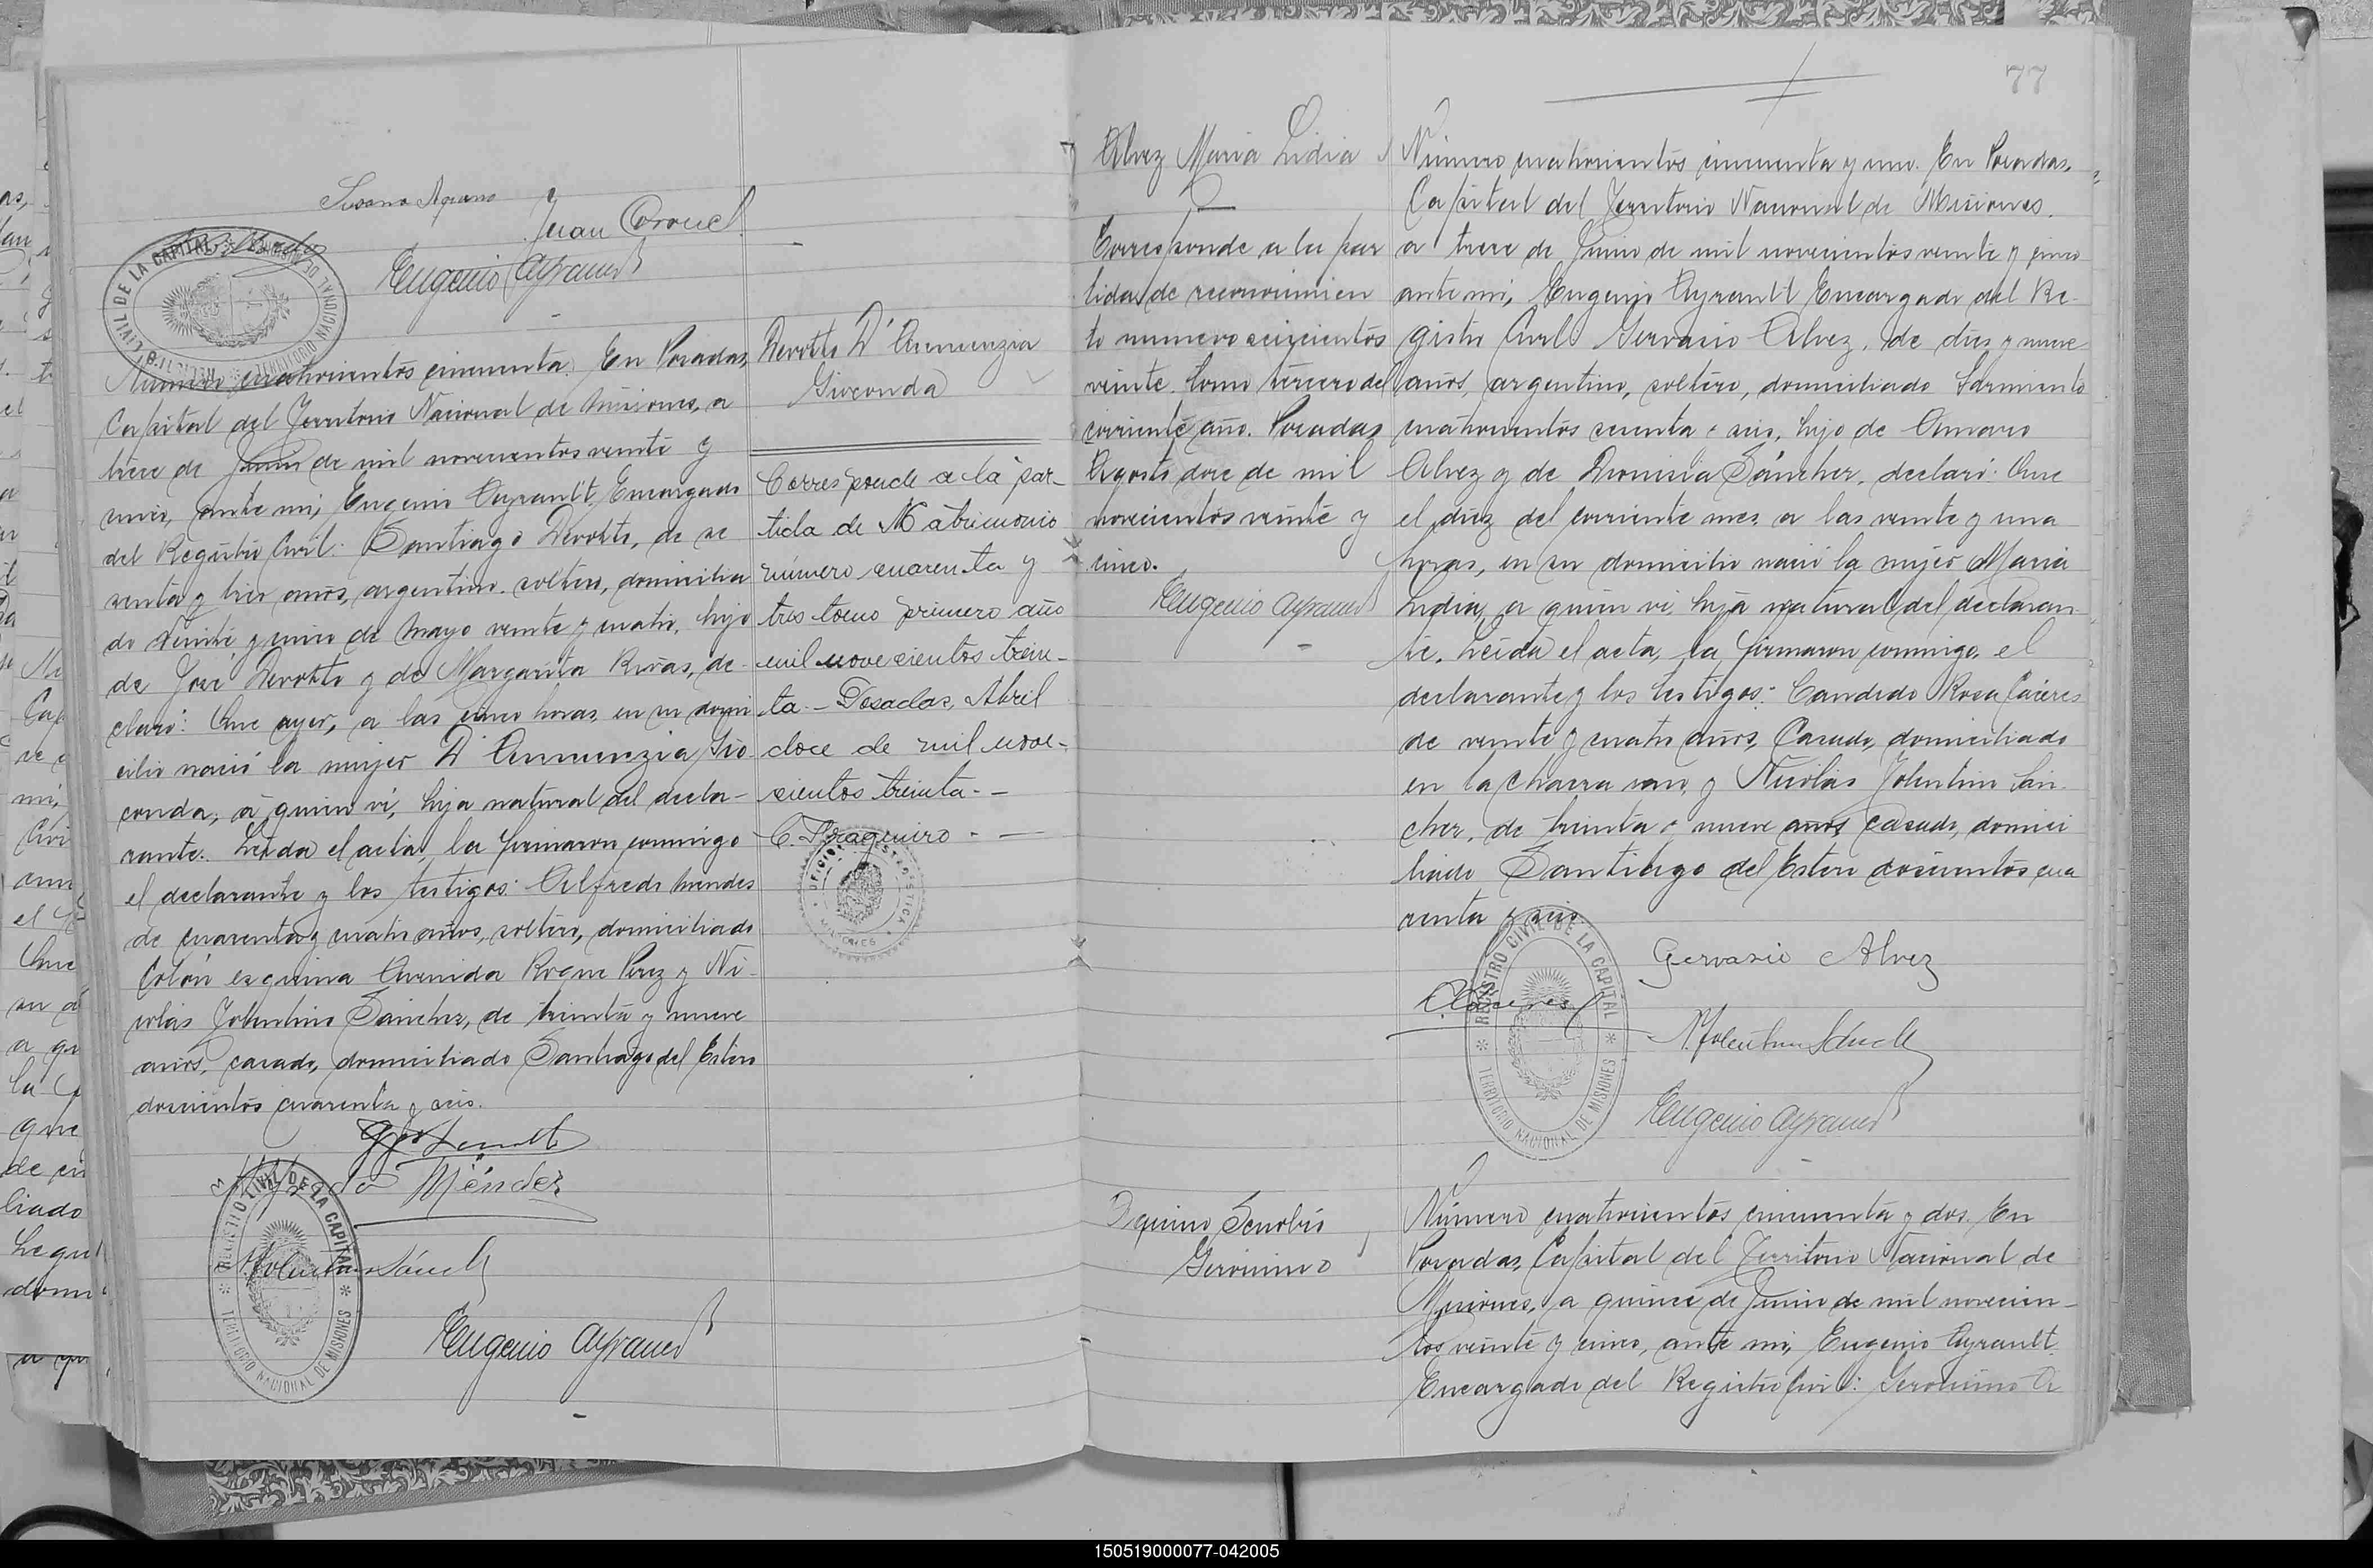 Juan Coronel
Eugenio Ayrault
REGISTRO CIVIL DE LA CAPITAL
TERRITORIO NACIONAL DE MISIONES
Número cuatrocientos cincuenta. En Posadas,
Capital del Territorio Nacional de Misiones, a
trece de Junio de mil novecientos veinte y
cinco, ante mi, Eugenio Ayrault, Encargado
del Registro Civil: Santiago Devotto, de se
senta y tres años, argentino, soltero, domicilia
do Veinte y cinco de Mayo veinte y cuatro, hijo
de José Devotto y de Margarita Rivas, de-
claró: Que ayer, a las cinco horas, en su domi
cilio nació la mujer D'Annunzia Gio-
conda, a quien vi, hija natural del decla-
rante. Leida el acta, la firmaron conmigo
el declarante y los testigos: Alfredo Mendes
de cuarenta y cuatro años, soltero, domiciliado
Colón esquina Avenida Roque Perez y Ni-
colás Tolentino Sánchez, de treinta y nueve
años, casado, domiciliado Santiago del Estero
doscientos cuarenta y seis.
Alfredo Méndez
N. Tolentino Sánch
REGISTRO CIVIL DE LA CAPITAL
TERRITORIO NACIONAL DE MISIONES
Eugenio Ayrault
Devotto D'Annunzia
Gioconda
Corresponde a la par-
tida de Matrimonio
número cuarenta y
tres tomo primero año
mil novecientos trein-
ta.- Posadas, Abril
doce de mil nove-
cientos treinta.-
77
Alvez Maria Lidia
Corresponde a la par
tida de reconocimien
to numero seiscientos
veinte tomo tercero del
corriente año. Posadas
Agosto doce de mil
novecientos veinte y
cinco.
Eugenio Ayrault
Número cuatrocientos cincuenta y uno. En Posadas,
Capital del Territorio Nacional de Misiones,
a trece de Junio de mil novecientos veinte y cinco
ante mi, Eugenio Ayrault Encargado del Re-
gistro Civil: Gervasio Alvez, de diez y nueve
años, argentino, soltero, domiciliado Sarmiento
cuatrocientos sesenta y seis, hijo de Amaro
Alvez y de Dionisia Sánchez, declaró: Que
el diez del corriente mes, a las veinte y una
horas, en su domicilio nació la mujer Maria
Lidia, a quien vi, hija natural del declaran-
te. Leida el acta, la firmaron conmigo, el
declarante y los testigos: Candido Rosa Cáceres
de veinte y cuatro años, Casado, domiciliado
en la chacra uno, y Nicolás Tolentino Sán-
chez, de treinta y nueve años, casado, domici
liado Santiago del Estero doscientos cua
renta y seis.
Gervasio Alvez
C Caceres
N. Tolentino Sánch
REGISTRO CIVIL DE LA CAPITAL
TERRITORIO NACIONAL DE MISIONES
Eugenio Ayrault
Aquino Senobio
Gerónimo
Número cuatrocientos cincuenta y dos. En
Posadas, Capital del Territorio Nacional de
Misiones, a quince de Junio de mil novecien-
tos veinte y cinco, ante mi, Eugenio Ayrault
Encargado del Registro Civil: Gerónimo A
150519000077-042005